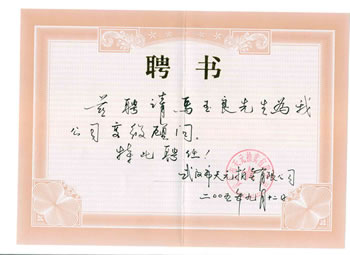 聘书
兹聘请马玉良先生为我
公司高级顾问。
特此聘任!
武汉市天元拍卖有限公司
二00五年九月十二日